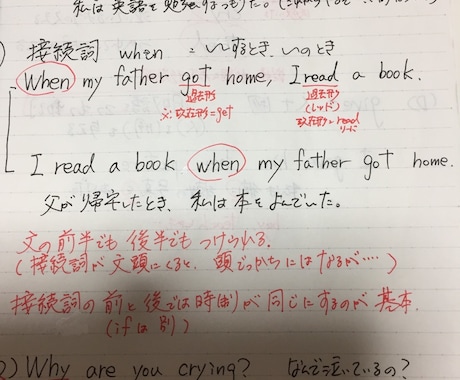 私は英語を勉強するつもりだ。
接続詞 when : 〜するとき、〜のとき
When my father got home, I read a book.
過去形 過去形
※現在形=get (レッド)
現在形=read
リード
I read a book when my father got home.
父が帰宅したとき、私は本をよんでいた。
文の前半でも後半でもつけられる。
(接続詞が文頭にくると、頭でっかちにはなるが‥‥)
接続詞の前と後では時制が同じにするのが基本.
(ifは別)
2) Why are you crying? なんで泣いているの?